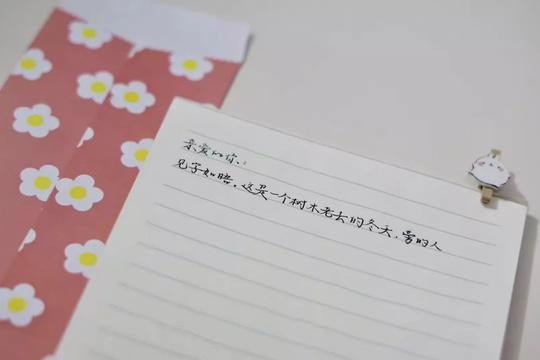 亲爱的你：
见字如晤，这是一个树木老去的冬天，写的人